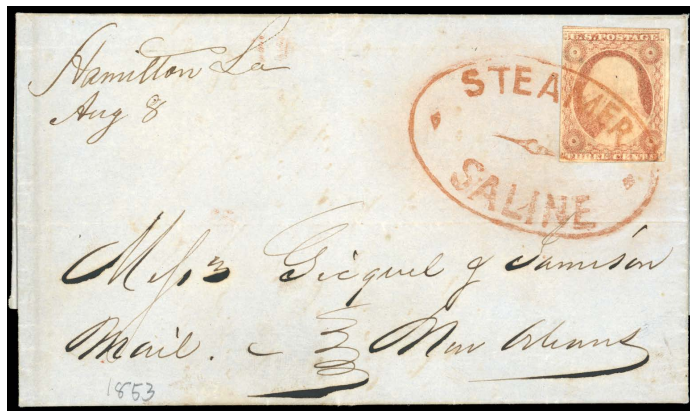 Hamilton La
Aug 8
U.S. POSTAGE
THREE CENTS
STEAMER
SALINE
Messrs Gicquel & Jamison
Mail. - New Orleans
1853